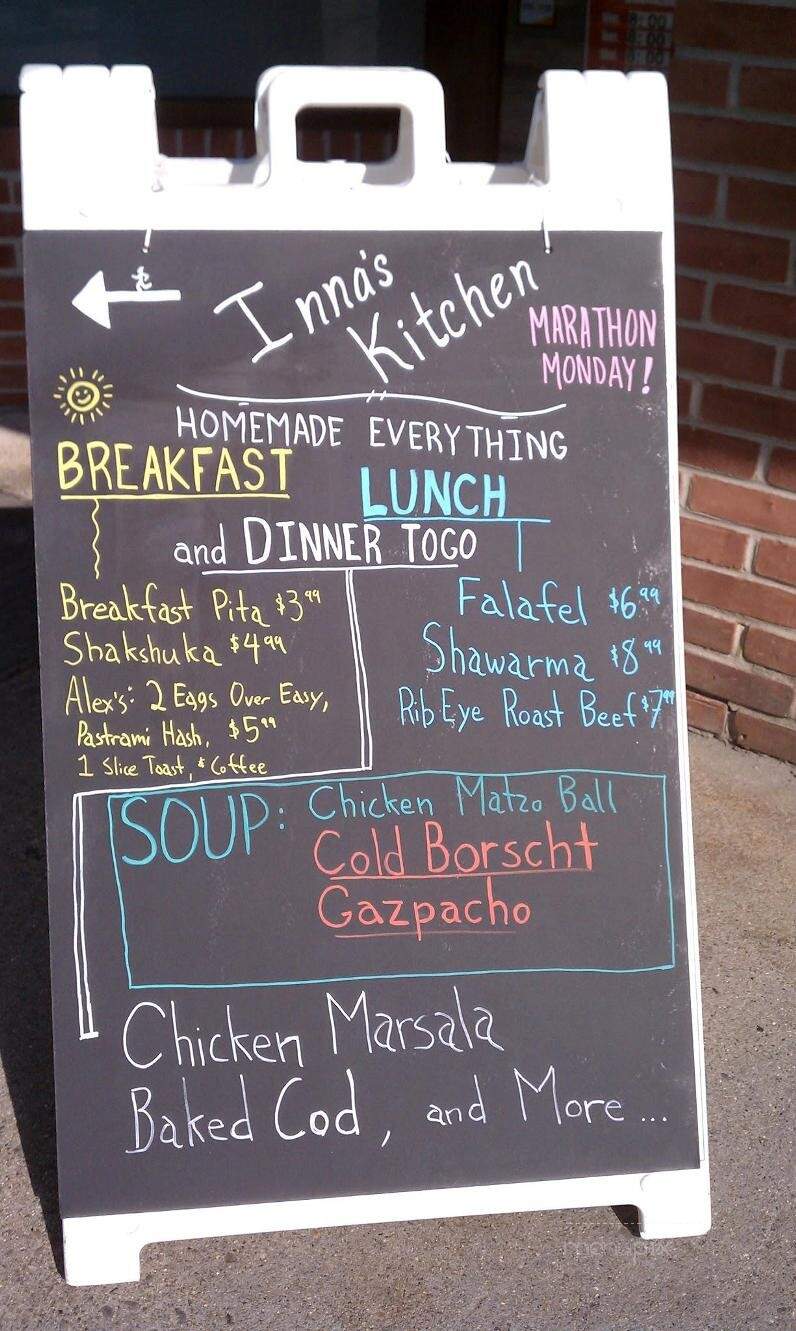 8:00
8:00
8:00
Inna's
Kitchen
MARATHON
MONDAY!
HOMEMADE EVERYTHING
BREAKFAST
LUNCH
and DINNER TOGO
Breakfast Pita $3.99
Shakshuka $4.99
Alex's: 2 Eggs Over Easy,
Pastrami Hash, $5.99
1 Slice Toast, & Coffee
Falafel $6.99
Shawarma $8.99
Rib Eye Roast Beef $7.99
SOUP: Chicken Matzo Ball
Cold Borscht
Gazpacho
Chicken Marsala
Baked Cod, and More...